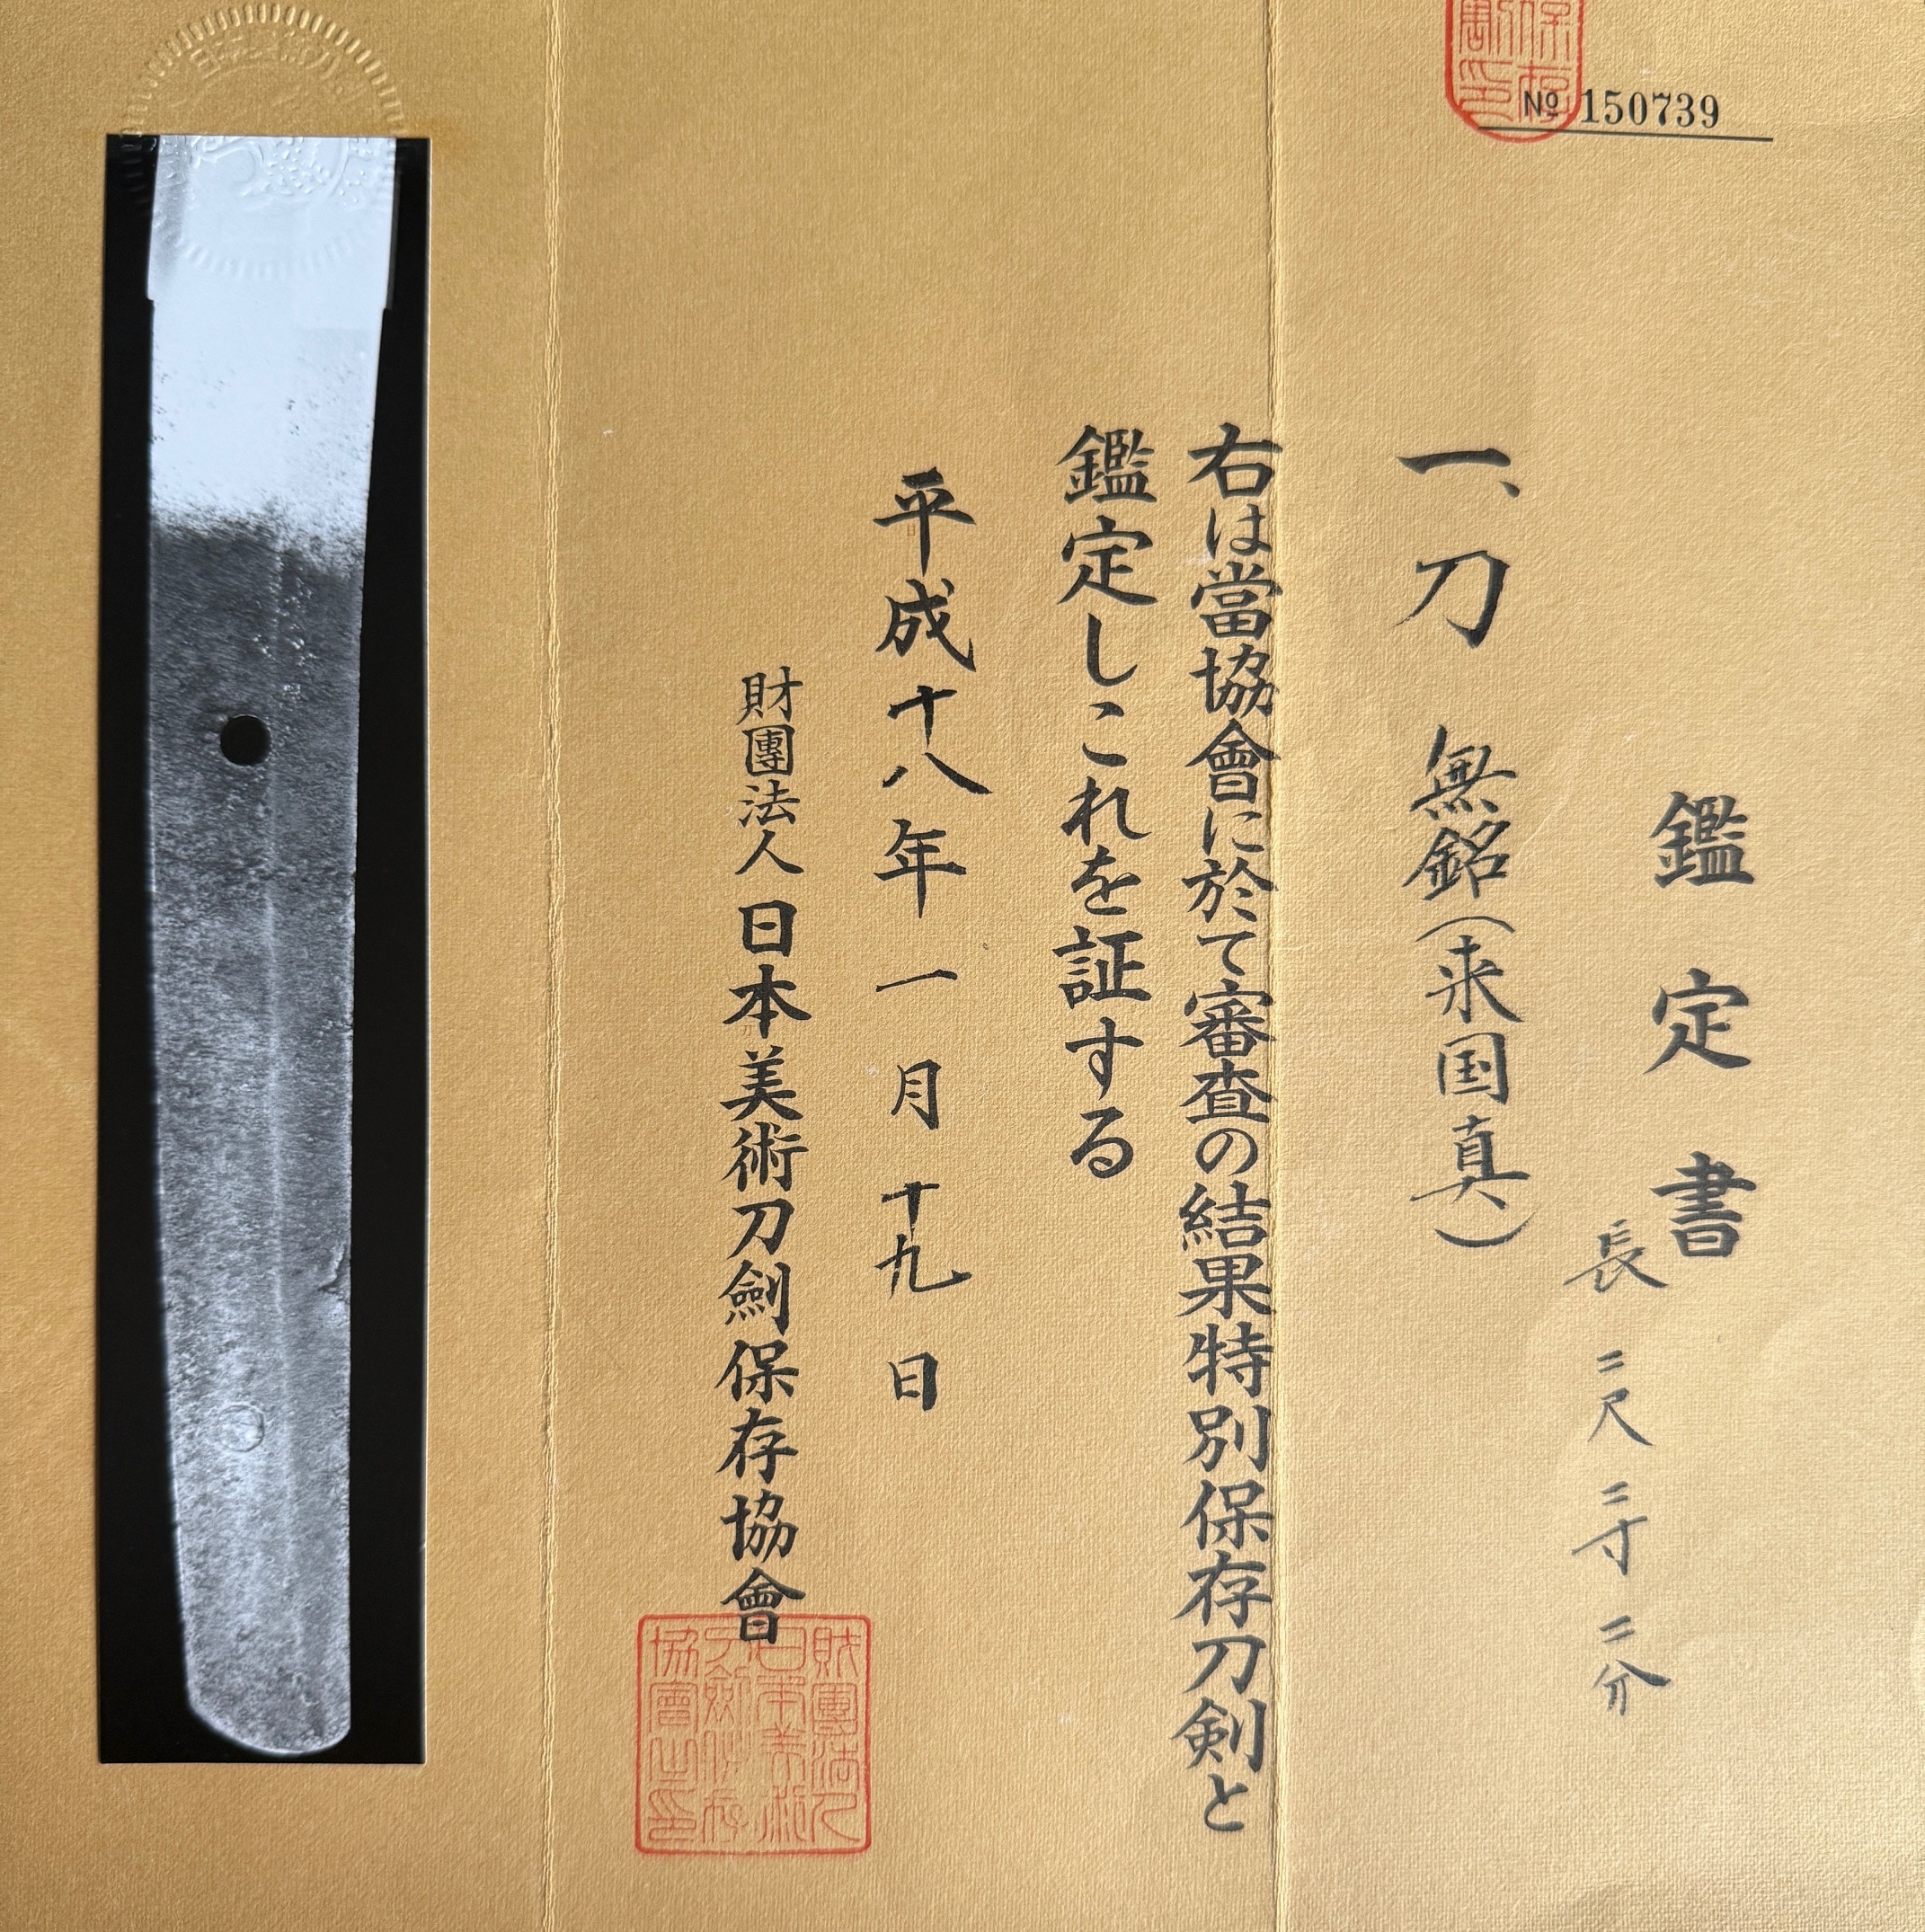 № 150739
鑑定書
長 二尺二寸二分
一、刀 無銘(来国真)
右は當協會に於て審査の結果特別保存刀剣と
鑑定しこれを証する
平成十八年一月十九日
財團法人 日本美術刀劍保存協會
財團法人日本美術刀劍保存協會之印